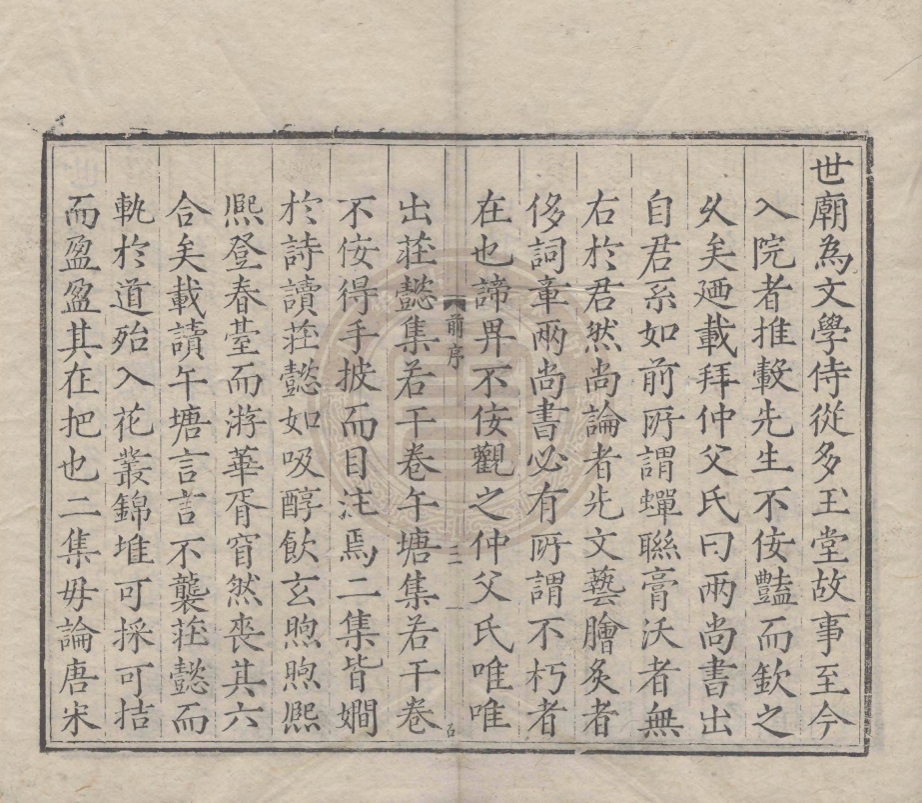 世廟為文學侍從多玉堂故事至今
入院者推轂先生不佞豔而欽之
乆矣廼載拜仲父氏曰兩尚書出
自君系如前所謂蟬聯膏沃者無
右於君然尚論者先文藝膾炙者
侈詞章兩尚書必有所謂不朽者
在也諦畀不佞觀之仲父氏唯唯
前序
三
出莊懿集若干卷午塘集若干卷
不佞得手披而目注焉二集皆嫺
於詩讀莊懿如吸醇飲玄煦煦熙
熙登春臺而游華胥窅然喪其六
合矣載讀午塘言言不襲莊懿而
軌於道殆入花叢錦堆可採可拮
而盈盈其在把也二集毋論唐宋